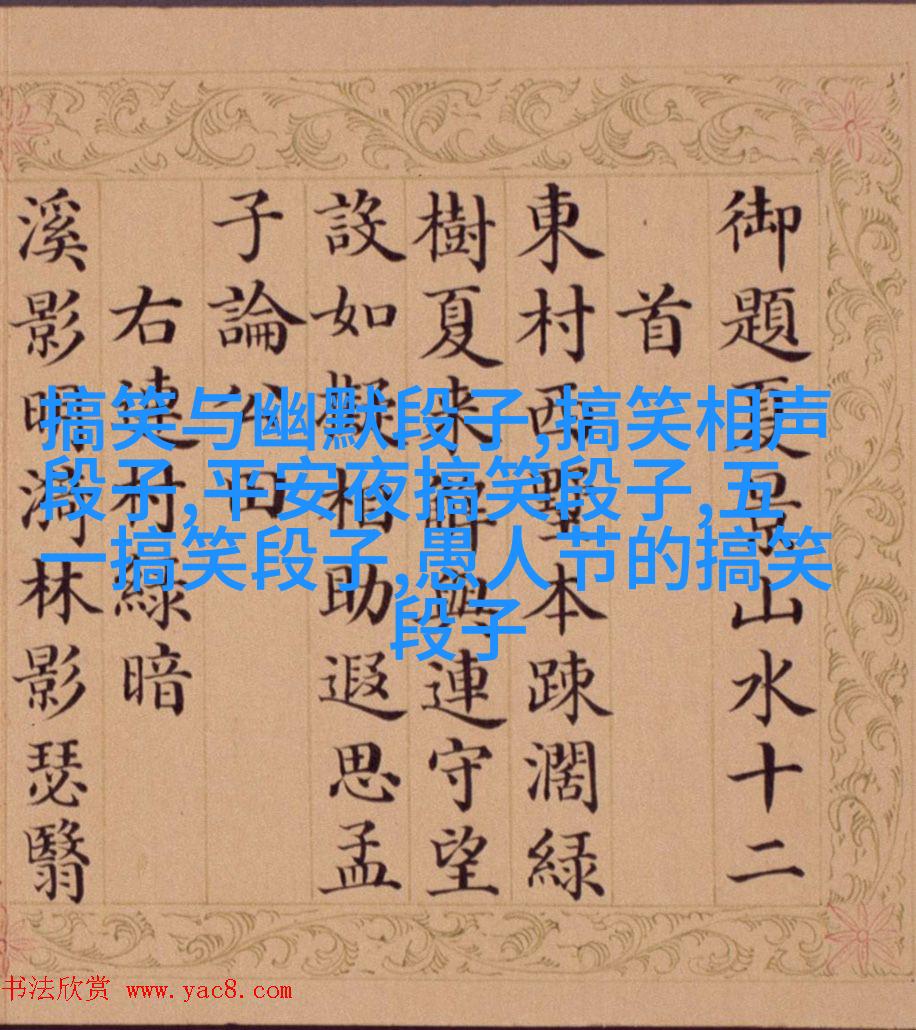 御題夏景山水十二
首
東村西墅本踈濶緑
樹夏来解與連守望
設如擬相助遐思孟
子論公田
右連村緑暗
溪影明漪林影瑟翳
搞笑与幽默段子,搞笑相声
段子,平安夜搞笑段子,五
一搞笑段子,愚人节的搞笑
段子
书法欣赏 www.yac8.com